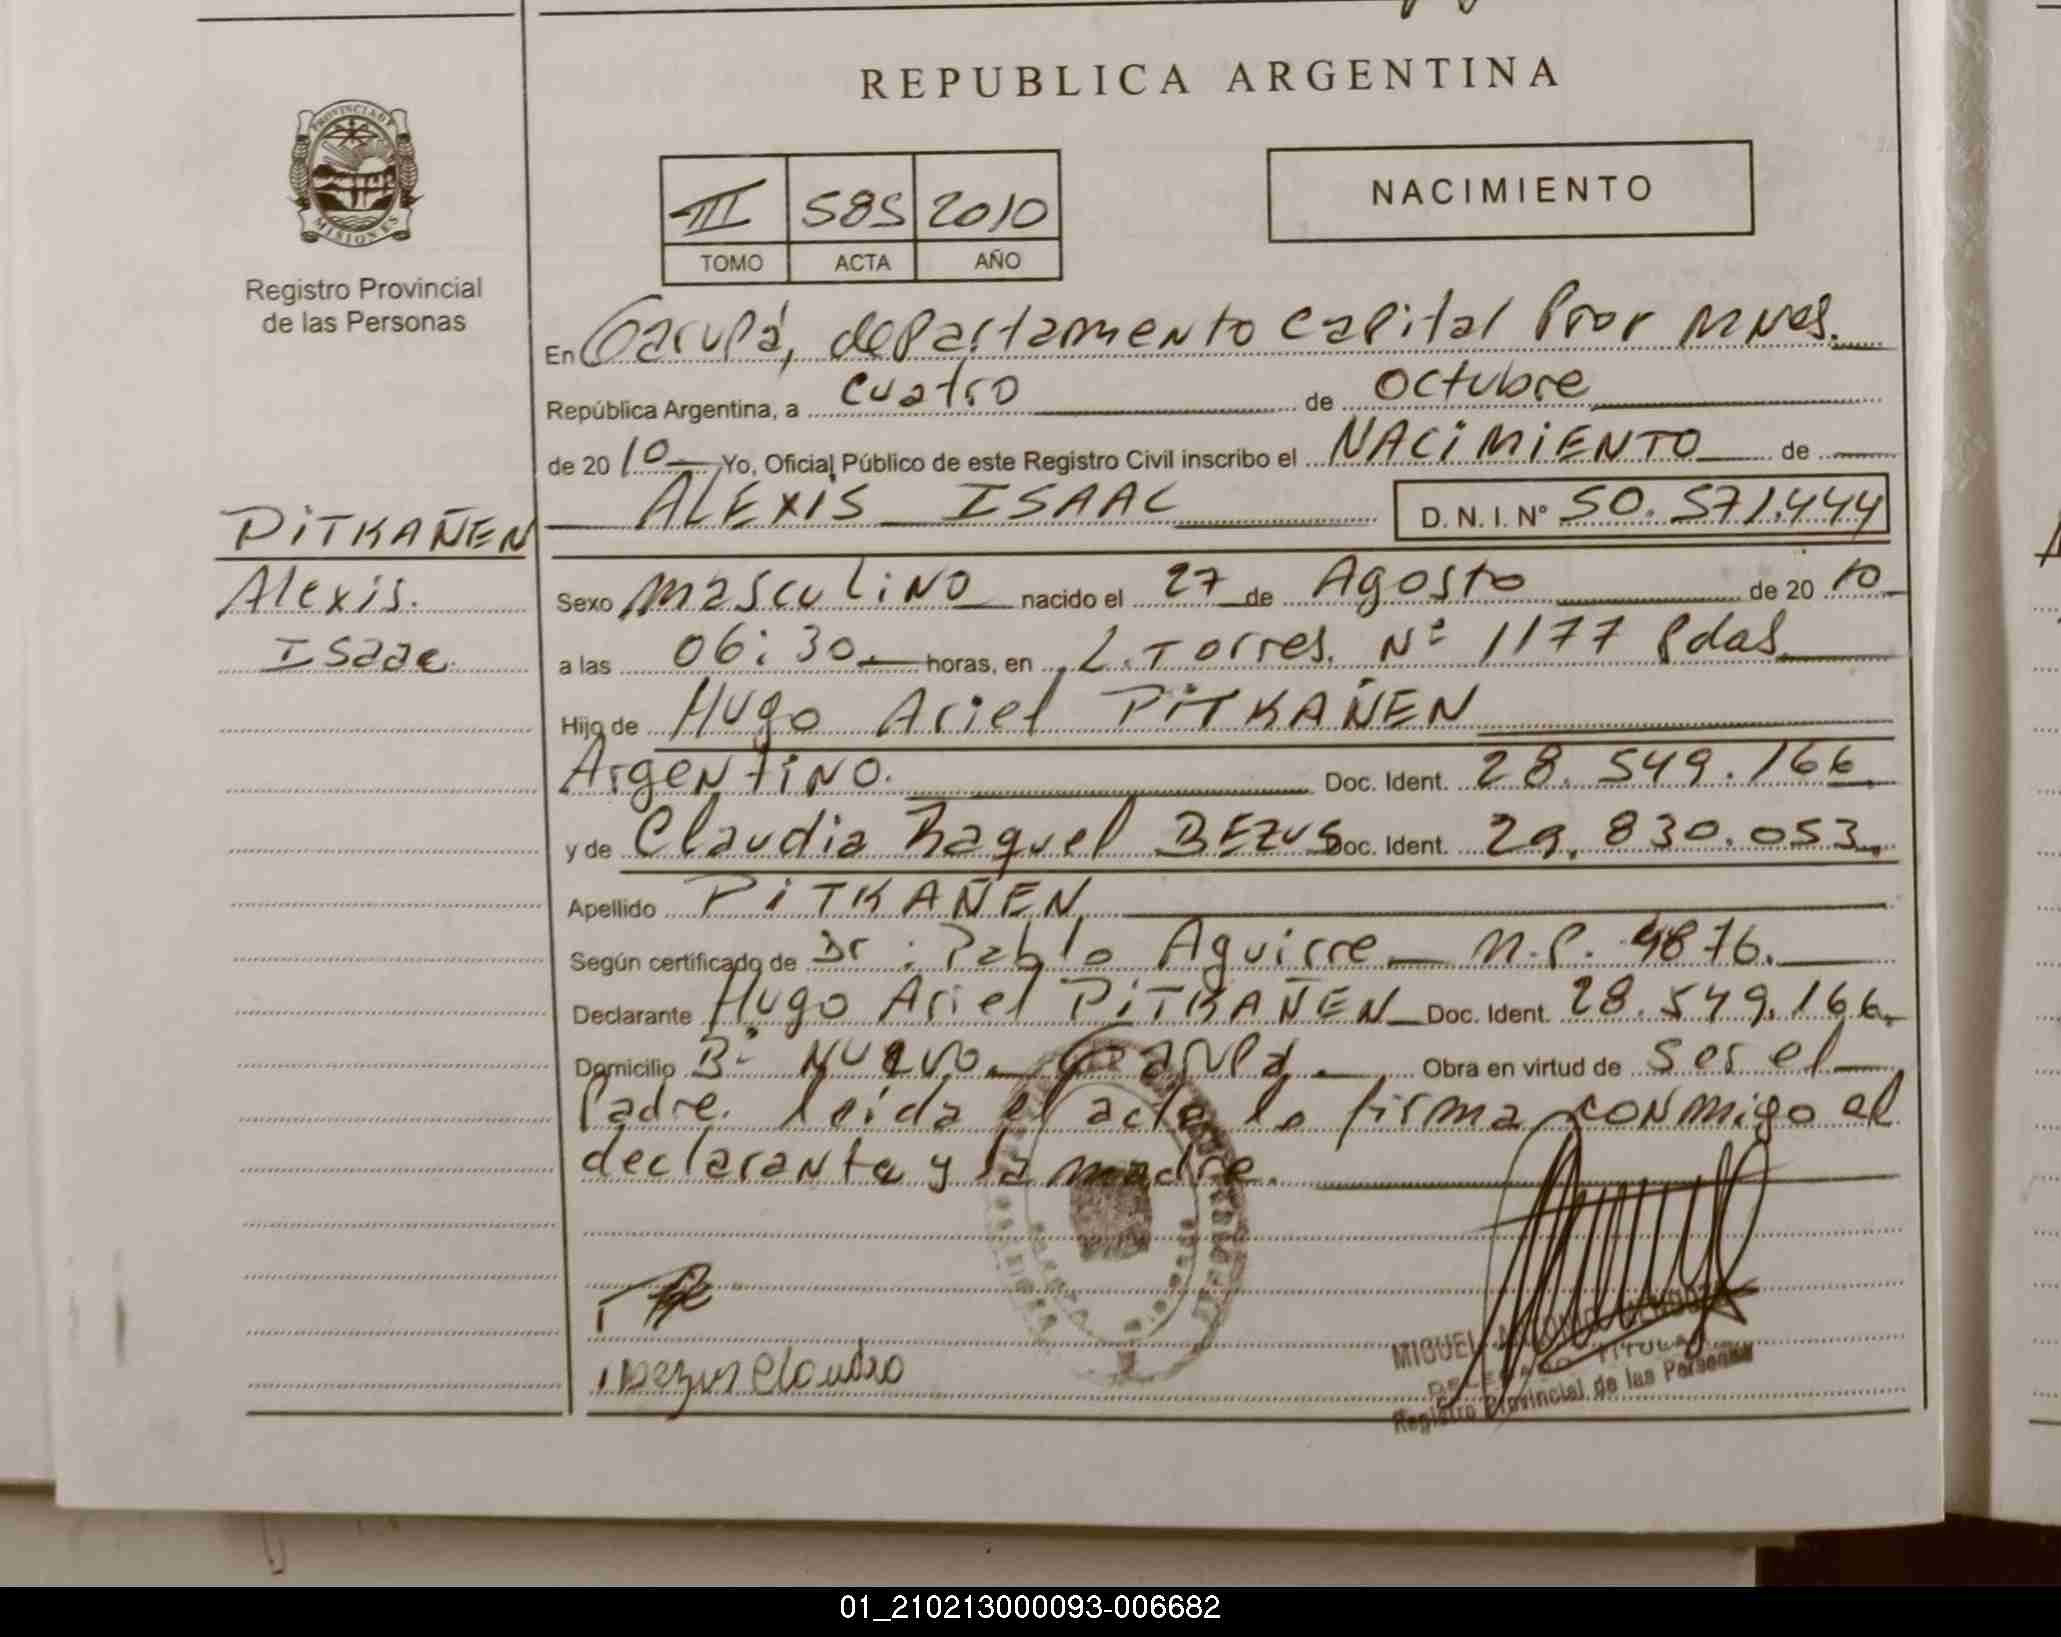 REPUBLICA ARGENTINA
PROVINCIA DE
MISIONES
Registro Provincial
de las Personas
III 585 2010
TOMO ACTA AÑO
NACIMIENTO
En Garupá, departamento Capital Prov Mnes.
República Argentina, a cuatro de octubre
de 2010 Yo, Oficial Público de este Registro Civil inscribo el NACIMIENTO de
ALEXIS ISAAC D. N. I. N° 50.571.444
PITKAÑEN
Alexis.
Isaac.
Sexo masculino nacido el 27 de Agosto de 2010
a las 06:30 horas, en L. Torres. N° 1177 Pdas
Hijo de Hugo Ariel PITKAÑEN
Argentino. Doc. Ident. 28.549.166
y de Claudia Raquel BEZUS Doc. Ident. 29.830.053
Apellido PITKAÑEN
Según certificado de Dr: Pablo Aguirre M.P. 4876.
Declarante Hugo Ariel PITKAÑEN Doc. Ident. 28.549.166
Domicilio B° Nuevo Garupá. Obra en virtud de ser el
Padre. leida el acta la firma conmigo el
declarante y la madre.
Bezus Claudia
MIGUEL ANTONIO
DELEGADO TITULAR
Registro Provincial de las Personas
01_210213000093-006682